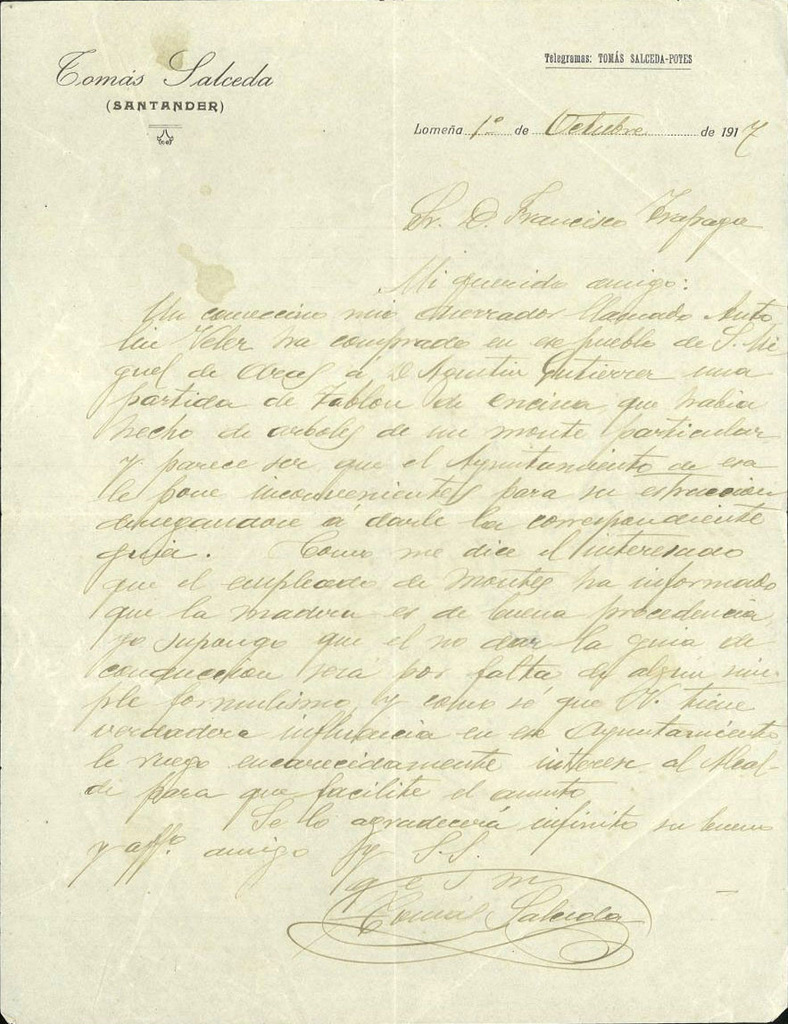 Tomás Salceda
(SANTANDER)
Telegramas: TOMÁS SALCEDA-POTES
Lomeña 1º de Octubre de 1917
Sr. D. Francisco
Mi querido amigo:
Un convecino mio llamado Anto
lin Velez ha comprado en ese pueblo de S. Mi
guel de á D Agustin Gutierrez una
partida de tablon de encina que habia
hecho de arboles de un monte particular
y parece ser que el Ayuntamiento de esa
le pone inconvenientes para su estraccion
denegandose á darle la correspondiente
guia. Como me dice el interesado
que el empleado de Montes ha informado
que la madera es de buena procedencia
yo supongo que el no dar la guia de
conduccion será por falta de algun sim-
ple formulismo, y como sé que V. tiene
verdadera influencia en ese Ayuntamiento
le ruego encarecidamente interese al Alcal-
de para que facilite el asunto
Se lo agradecerá infinito su buen
y affº. amigo S.S.
q e s m
Tomás Salceda